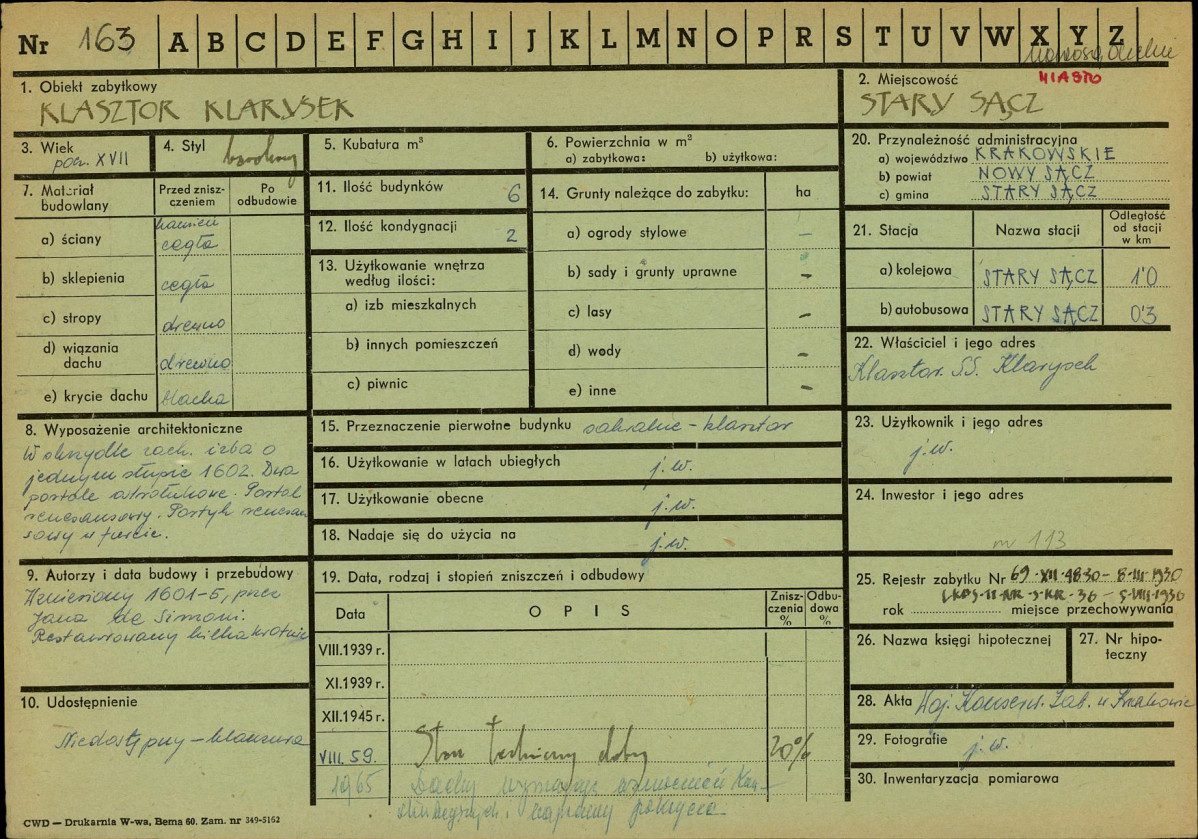 Nr 163 A B C D E F G H I J K L M N O P R S T U V W X Y Z
MIASTO
1. Obiekt zabytkowy
KLASZTOR KLARYSEK
2. Miejscowość
STARY SĄCZ
3. Wiek
pocz. XVII
4. Styl
barokowy
5. Kubatura m³
6. Powierzchnia w m²
a) zabytkowa: b) użytkowa:
20. Przynależność administracyjna
a) województwo KRAKOWSKIE
b) powiat NOWY SĄCZ
c) gmina STARY SĄCZ
7. Materiał budowlany
Przed zniszczeniem
Po odbudowie
a) ściany kamień cegła
b) sklepienia cegła
c) stropy drewno
d) wiązania dachu drewno
e) krycie dachu blacha
11. Ilość budynków 6
12. Ilość kondygnacji 2
13. Użytkowanie wnętrza
według ilości:
a) izb mieszkalnych
b) innych pomieszczeń
c) piwnic
14. Grunty należące do zabytku: ha
a) ogrody stylowe –
b) sady i grunty uprawne –
c) lasy –
d) wody –
e) inne –
21. Stacja Nazwa stacji Odległość od stacji w km
a) kolejowa STARY SĄCZ 1'0
b) autobusowa STARY SĄCZ 0'3
22. Właściciel i jego adres
Klasztor SS. Klarysek
8. Wyposażenie architektoniczne
W skrzydle zach. izba o
jednym słupie 1602. Dwa
portale ostrołukowe. Portal
renesansowy. Portyk renesan
sowy w furcie.
15. Przeznaczenie pierwotne budynku sakralne – klasztor
16. Użytkowanie w latach ubiegłych j.w.
17. Użytkowanie obecne j.w.
18. Nadaje się do użycia na j.w.
23. Użytkownik i jego adres
j.w.
24. Inwestor i jego adres
m 113
9. Autorzy i data budowy i przebudowy
Wzniesiony 1601-5, przez
Jana de Simoni.
Restaurowany kilkakrotnie
19. Data, rodzaj i stopień zniszczeń i odbudowy
Data OPIS Zniszczenia % Odbudowa %
VIII.1939 r.
XI.1939 r.
XII.1945 r.
VIII.59. Stan techniczny dobry 20%
1965 Dachy wymagają wzmocnień kon-
strukcyjnych i naprawy pokrycia
25. Rejestr zabytku Nr 69-XII-4830 – 8-III-1930
rok miejsce przechowywania
26. Nazwa księgi hipotecznej
27. Nr hipoteczny
10. Udostępnienie
Niedostępny – klauzura
28. Akta Woj. Konserw. Zab. w Krakowie
29. Fotografie j.w.
30. Inwentaryzacja pomiarowa
CWD — Drukarnia W-wa, Bema 60. Zam. nr 349-5162